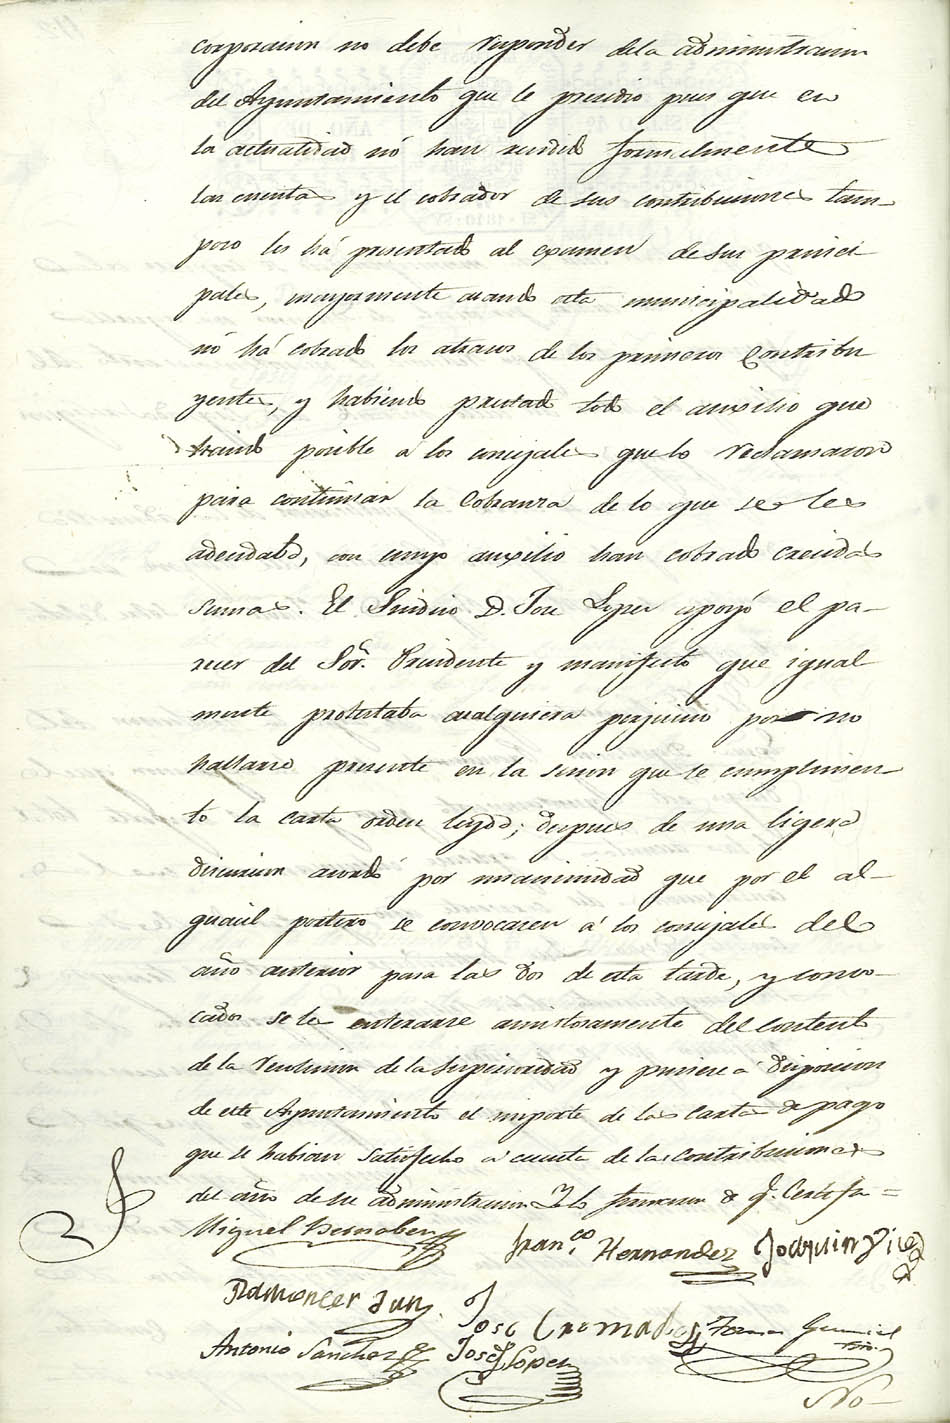 corporacion no debe responder dela administracion
del Ayuntamiento que le presidio pues que en
la actualidad nó han rendido formalmente
las cuentas y el cobrador de sus contribuciones tam-
poco les há presentado al examen de sus princi-
pales, mayormente cuando esta municipalidad
nó há cobrado los atrasos de los primeros Contribu
yentes, y habiendo prestado todo el auxilio que
posible á los concejales que lo reclamaron
para continuar la Cobranza de lo que se les
adeudaba, con cuyo auxilio han cobrado crecidas
sumas. El Sindico D. Jose Lopez apoyó el pa-
recer del Sor. Presidente y manifesto que igual
mente protestaba cualquiera perjuicio por no
hallarse presente en la sesion que se cumplimen-
tó la carta orden leyda; despues de una ligera
discusion acordó por unanimidad que por el al-
guacil portero se convocasen á los concejales del
año anterior para las dos de esta tarde, y convo-
cados se les enterase amistosamente del contenido
de la resolucion de la Superioridad y pusiese á disposicion
de este Ayuntamiento el importe de las cartas de pago
que se habian satisfecho á cuenta de las contribuciones
del año de su administracion Y lo firmaron de q. Certifo =
Miguel Bernabeu
Franco. Hernandez Joaquin
Jose Cremades
Antonio Sanchez Jose Lopez
No-